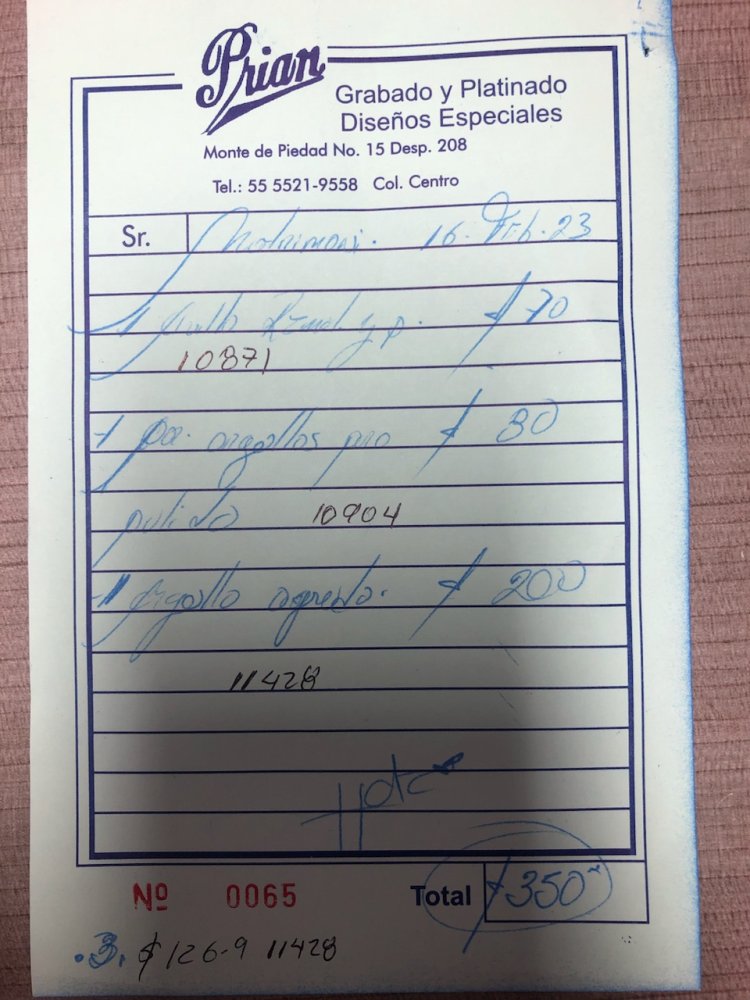 Prian
Grabado y Platinado
Diseños Especiales
Monte de Piedad No. 15 Desp. 208
Tel.: 55 5521-9558 Col. Centro
Sr. 16. Feb. 23
1 y p. $ 70
10871
1 par argollas para $ 80
pulido 10904
1 Argolla $ 200
11428
Nº 0065 Total $350
.3. $126-9 11428